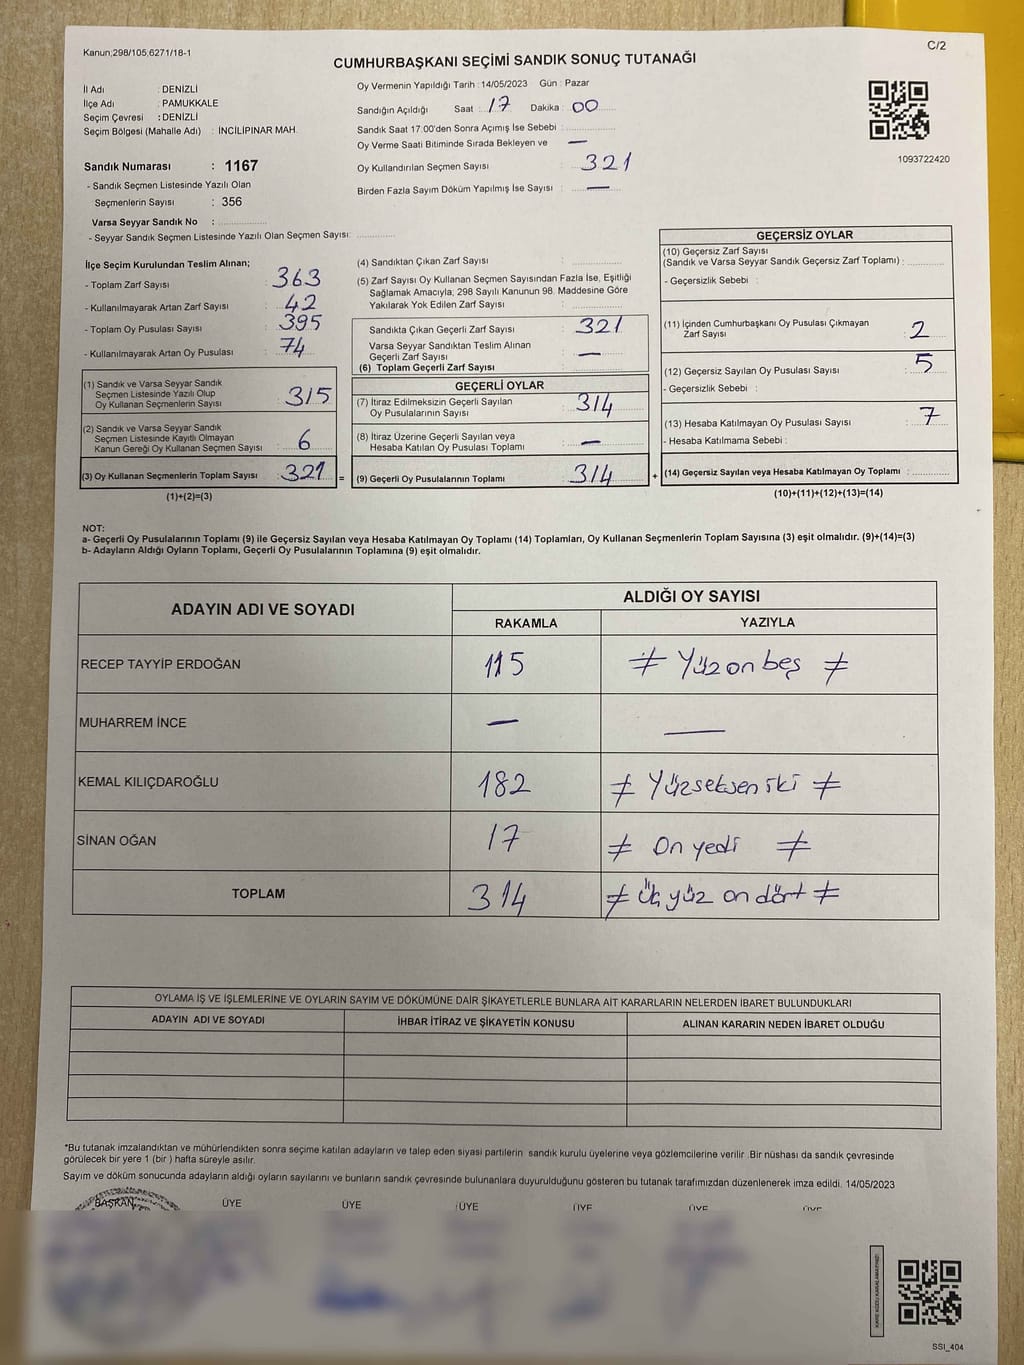 Kanun;298/105,6271/18-1
C/2
CUMHURBAŞKANI SEÇİMİ SANDIK SONUÇ TUTANAĞI
İl Adı : DENİZLİ
İlçe Adı : PAMUKKALE
Seçim Çevresi : DENİZLİ
Seçim Bölgesi (Mahalle Adı) : İNCİLİPINAR MAH.
Sandık Numarası : 1167
- Sandık Seçmen Listesinde Yazılı Olan
Seçmenlerin Sayısı : 356
Varsa Seyyar Sandık No :
- Seyyar Sandık Seçmen Listesinde Yazılı Olan Seçmen Sayısı:
Oy Vermenin Yapıldığı Tarih : 14/05/2023 Gün : Pazar
Sandığın Açıldığı Saat : 17 Dakika : 00
Sandık Saat 17.00'den Sonra Açımış İse Sebebi :
Oy Verme Saati Bitiminde Sırada Bekleyen ve —
Oy Kullandırılan Seçmen Sayısı : 321
Birden Fazla Sayım Döküm Yapılmış İse Sayısı : —
1093722420
İlçe Seçim Kurulundan Teslim Alınan;
- Toplam Zarf Sayısı : 363
- Kullanılmayarak Artan Zarf Sayısı : 42
- Toplam Oy Pusulası Sayısı : 395
- Kullanılmayarak Artan Oy Pusulası : 74
(1) Sandık ve Varsa Seyyar Sandık
Seçmen Listesinde Yazılı Olup
Oy Kullanan Seçmenlerin Sayısı : 315
(2) Sandık ve Varsa Seyyar Sandık
Seçmen Listesinde Kayıtlı Olmayan
Kanun Gereği Oy Kullanan Seçmen Sayısı : 6
(3) Oy Kullanan Seçmenlerin Toplam Sayısı : 321 =
(1)+(2)=(3)
(4) Sandıktan Çıkan Zarf Sayısı :
(5) Zarf Sayısı Oy Kullanan Seçmen Sayısından Fazla İse, Eşitliği
Sağlamak Amacıyla, 298 Sayılı Kanunun 98. Maddesine Göre
Yakılarak Yok Edilen Zarf Sayısı :
Sandıkta Çıkan Geçerli Zarf Sayısı : 321
Varsa Seyyar Sandıktan Teslim Alınan
Geçerli Zarf Sayısı : —
(6) Toplam Geçerli Zarf Sayısı :
GEÇERLİ OYLAR
(7) İtiraz Edilmeksizin Geçerli Sayılan
Oy Pusulalarının Sayısı : 314
(8) İtiraz Üzerine Geçerli Sayılan veya
Hesaba Katılan Oy Pusulası Toplamı : —
(9) Geçerli Oy Pusulalarının Toplamı : 314 +
GEÇERSİZ OYLAR
(10) Geçersiz Zarf Sayısı
(Sandık ve Varsa Seyyar Sandık Geçersiz Zarf Toplamı) :
- Geçersizlik Sebebi :
(11) İçinden Cumhurbaşkanı Oy Pusulası Çıkmayan
Zarf Sayısı : 2
(12) Geçersiz Sayılan Oy Pusulası Sayısı : 5
- Geçersizlik Sebebi :
(13) Hesaba Katılmayan Oy Pusulası Sayısı : 7
- Hesaba Katılmama Sebebi :
(14) Geçersiz Sayılan veya Hesaba Katılmayan Oy Toplamı :
(10)+(11)+(12)+(13)=(14)
NOT:
a- Geçerli Oy Pusulalarının Toplamı (9) ile Geçersiz Sayılan veya Hesaba Katılmayan Oy Toplamı (14) Toplamları, Oy Kullanan Seçmenlerin Toplam Sayısına (3) eşit olmalıdır. (9)+(14)=(3)
b- Adayların Aldığı Oyların Toplamı, Geçerli Oy Pusulalarının Toplamına (9) eşit olmalıdır.
ADAYIN ADI VE SOYADI
ALDIĞI OY SAYISI
RAKAMLA YAZIYLA
RECEP TAYYİP ERDOĞAN 115 ≠ Yüz on beş ≠
MUHARREM İNCE — —
KEMAL KILIÇDAROĞLU 182 ≠ Yüzseksen iki ≠
SİNAN OĞAN 17 ≠ On yedi ≠
TOPLAM 314 ≠ Üç yüz on dört ≠
OYLAMA İŞ VE İŞLEMLERİNE VE OYLARIN SAYIM VE DÖKÜMÜNE DAİR ŞİKAYETLERLE BUNLARA AİT KARARLARIN NELERDEN İBARET BULUNDUKLARI
ADAYIN ADI VE SOYADI İHBAR İTİRAZ VE ŞİKAYETİN KONUSU ALINAN KARARIN NEDEN İBARET OLDUĞU
*Bu tutanak imzalandıktan ve mühürlendikten sonra seçime katılan adayların ve talep eden siyasi partilerin sandık kurulu üyelerine veya gözlemcilerine verilir .Bir nüshası da sandık çevresinde
görülecek bir yere 1 (bir ) hafta süreyle asılır.
Sayım ve döküm sonucunda adayların aldığı oyların sayılarını ve bunların sandık çevresinde bulunanlara duyurulduğunu gösteren bu tutanak tarafımızdan düzenlenerek imza edildi. 14/05/2023
BAŞKAN ÜYE ÜYE ÜYE ÜYE ÜYE ÜYE
SSI_404